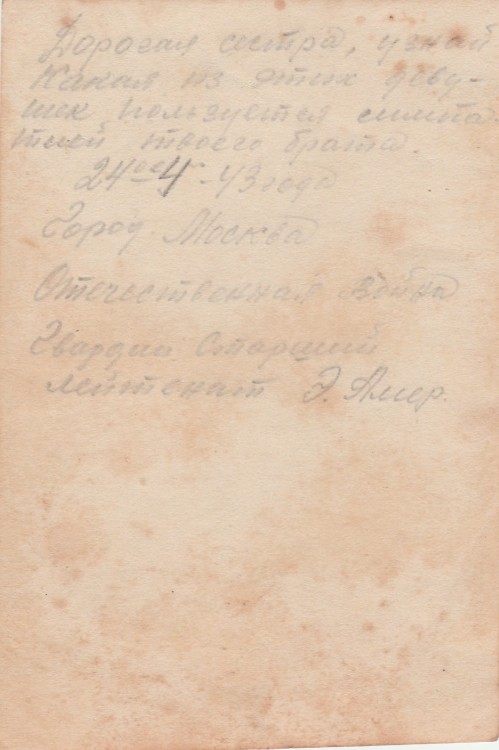 Дорогая сестра, узнай
Какая из этих деву-
шек пользуется симпа
тией твоего брата.
24ое 4 - 43 года
Город Москва
Отечественная Война
Гвардии Старший
лейтенант Э. Амер.